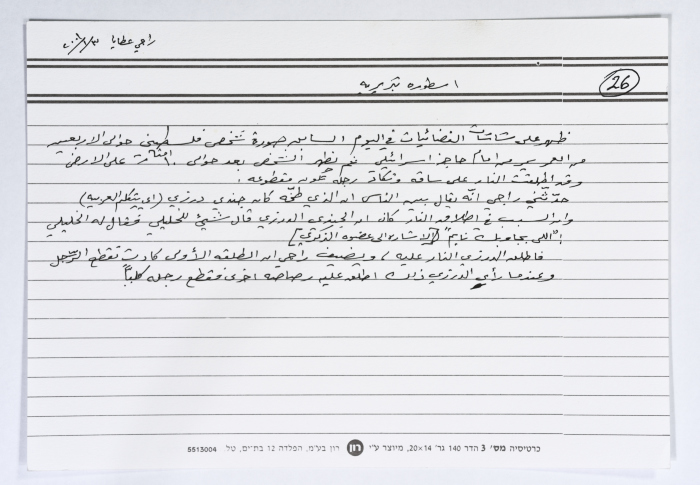 راجي عطايا
26
اسطوره تبريريه
ظهر على شاشات الفضائيات في اليوم السابق صورة شخص فلسطيني حوالى الاربعين
من العمر يمر من امام حاجز اسرائيلي ثم يظهر الشخص بعد حوالى على الارض
وقد اطلقت النار على ساقه وتكاد رجله تكون مقطوعه :
حدثني راجي انه يقال بين الناس ان الذي طخه كان جندي درزي (اي يتكلم العربيه)
وان السبب في اطلاق النار كان ان الجندي الدرزي قال شيئ للخليلي فقال له الخليلي
"اللي بجاوبك نايم" [الاشاره الى عضوه الذكري]
فاطلق الدرزي النار عليه ، ويضيف راجي ان الطلقه الأولى كادت تقطع الرجل
وعندما رأى الدرزي ذلك اطلق عليه رصاصه اخرى فقطع رجله كلياً
כרטיסיה מס' 3 הדר 140 גר' 20×14, מיוצר ע"י רון רון בע"מ, הפלדה 12 בת-ים, טל. 5513004